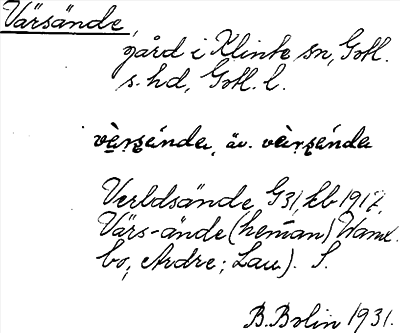 Värsände,
gård i Klinte sn, Gotl.
s. hd, Gotl. l.
vèrsánda, äv. vèrsánda
Verldsände G 31, kb 1917,
Värs-ände (heman)
bo, Ardre; Lau). S.
B. Bolin 1931.